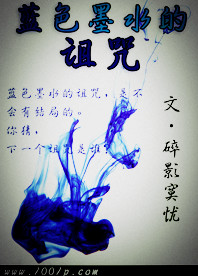 蓝色墨水的
诅咒
蓝色墨水的诅咒，是不
会有结局的。
你猜，
下一个诅咒是谁？
文·碎影寞忧
www.1001p.com